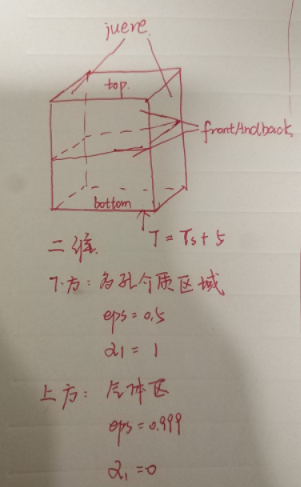 juere.
top.
frontAndback
bottom
二维. T = Ts + 5
下方: 多孔介质区域
eps = 0.5
α1 = 1
上方: 气体区
eps = 0.999
α1 = 0